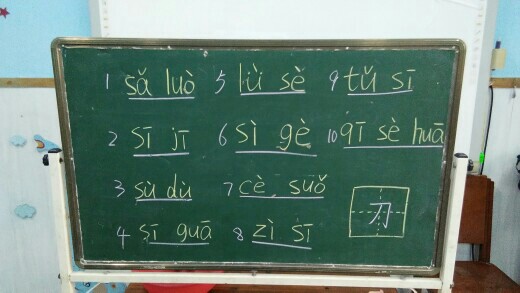 1 sǎ luò 5 lǜ sè 9 tǔ sī
2 sī jī 6 sì gè 10 qī sè huā
3 sù dù 7 cè suǒ
4 sī guā 8 zì sī 刀